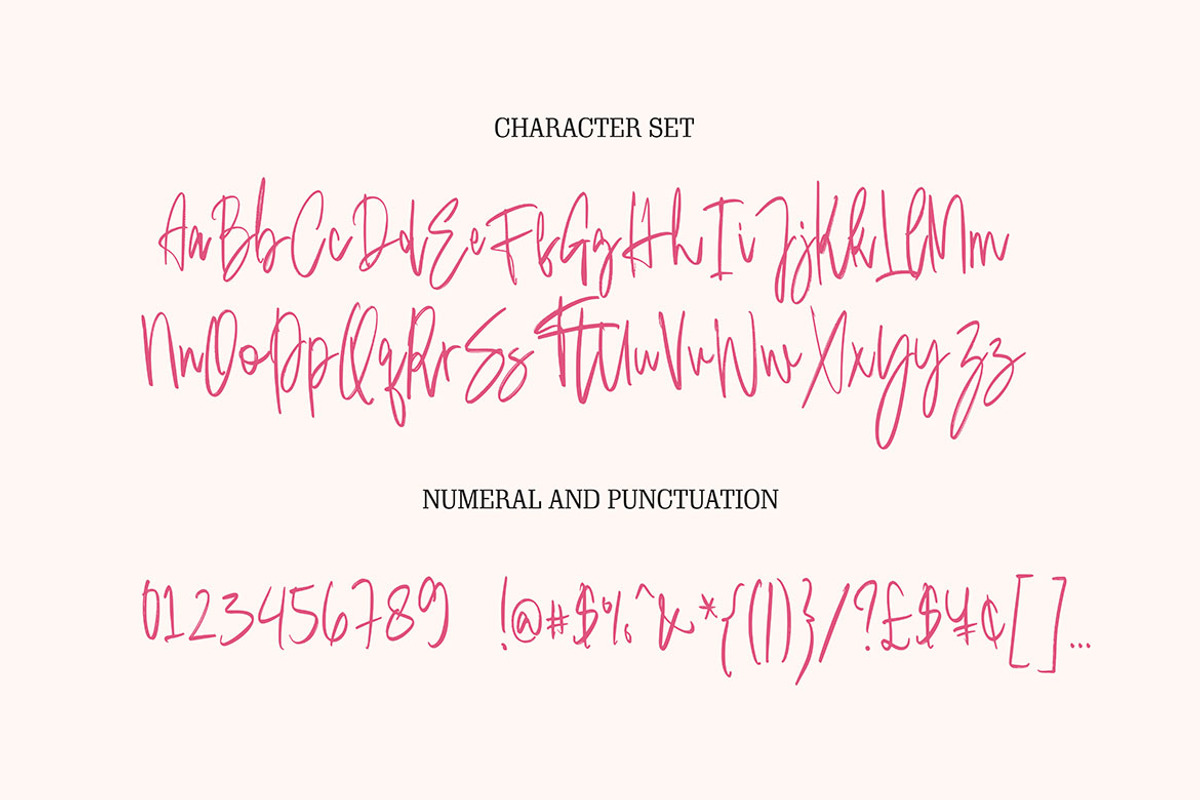 CHARACTER SET
AaBbCcDdEeFfGgHhIiJjKkLlMm
NnOoPpQqRrSsTtUuVvWwXxYyZz
NUMERAL AND PUNCTUATION
0123456789 !@#$%^&*{(|)}/?£$¥¢[]...